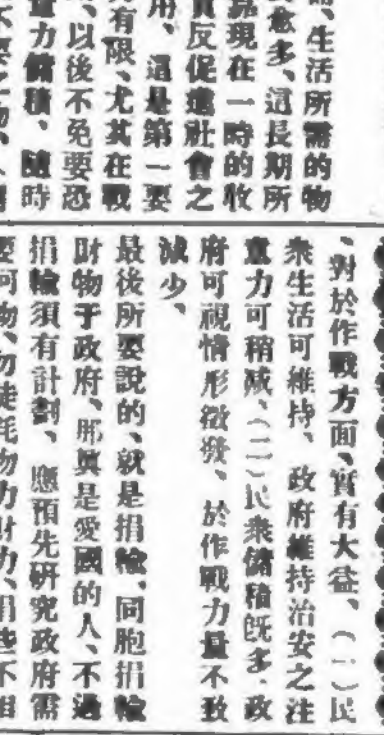 、生活所需的物
愈多、這長期所
現在一時的收
反促進社會之
用、這是第一要
有限、尤其在戰
、以後不免要恐
量力儲積、隨時
不要之物、
、對於作戰方面、實有大益、(一)民
衆生活可維持、政府維持治安之注
意力可稍減、(二)民衆儲積旣多、政
府可視情形徵發、於作戰力量不致
減少、
最後所要說的、就是捐輸、同胞捐輸
財物于政府、那眞是愛國的人、不過
捐輸須有計劃、應預先研究政府需
要何物、勿徒耗物力財力、捐些不相